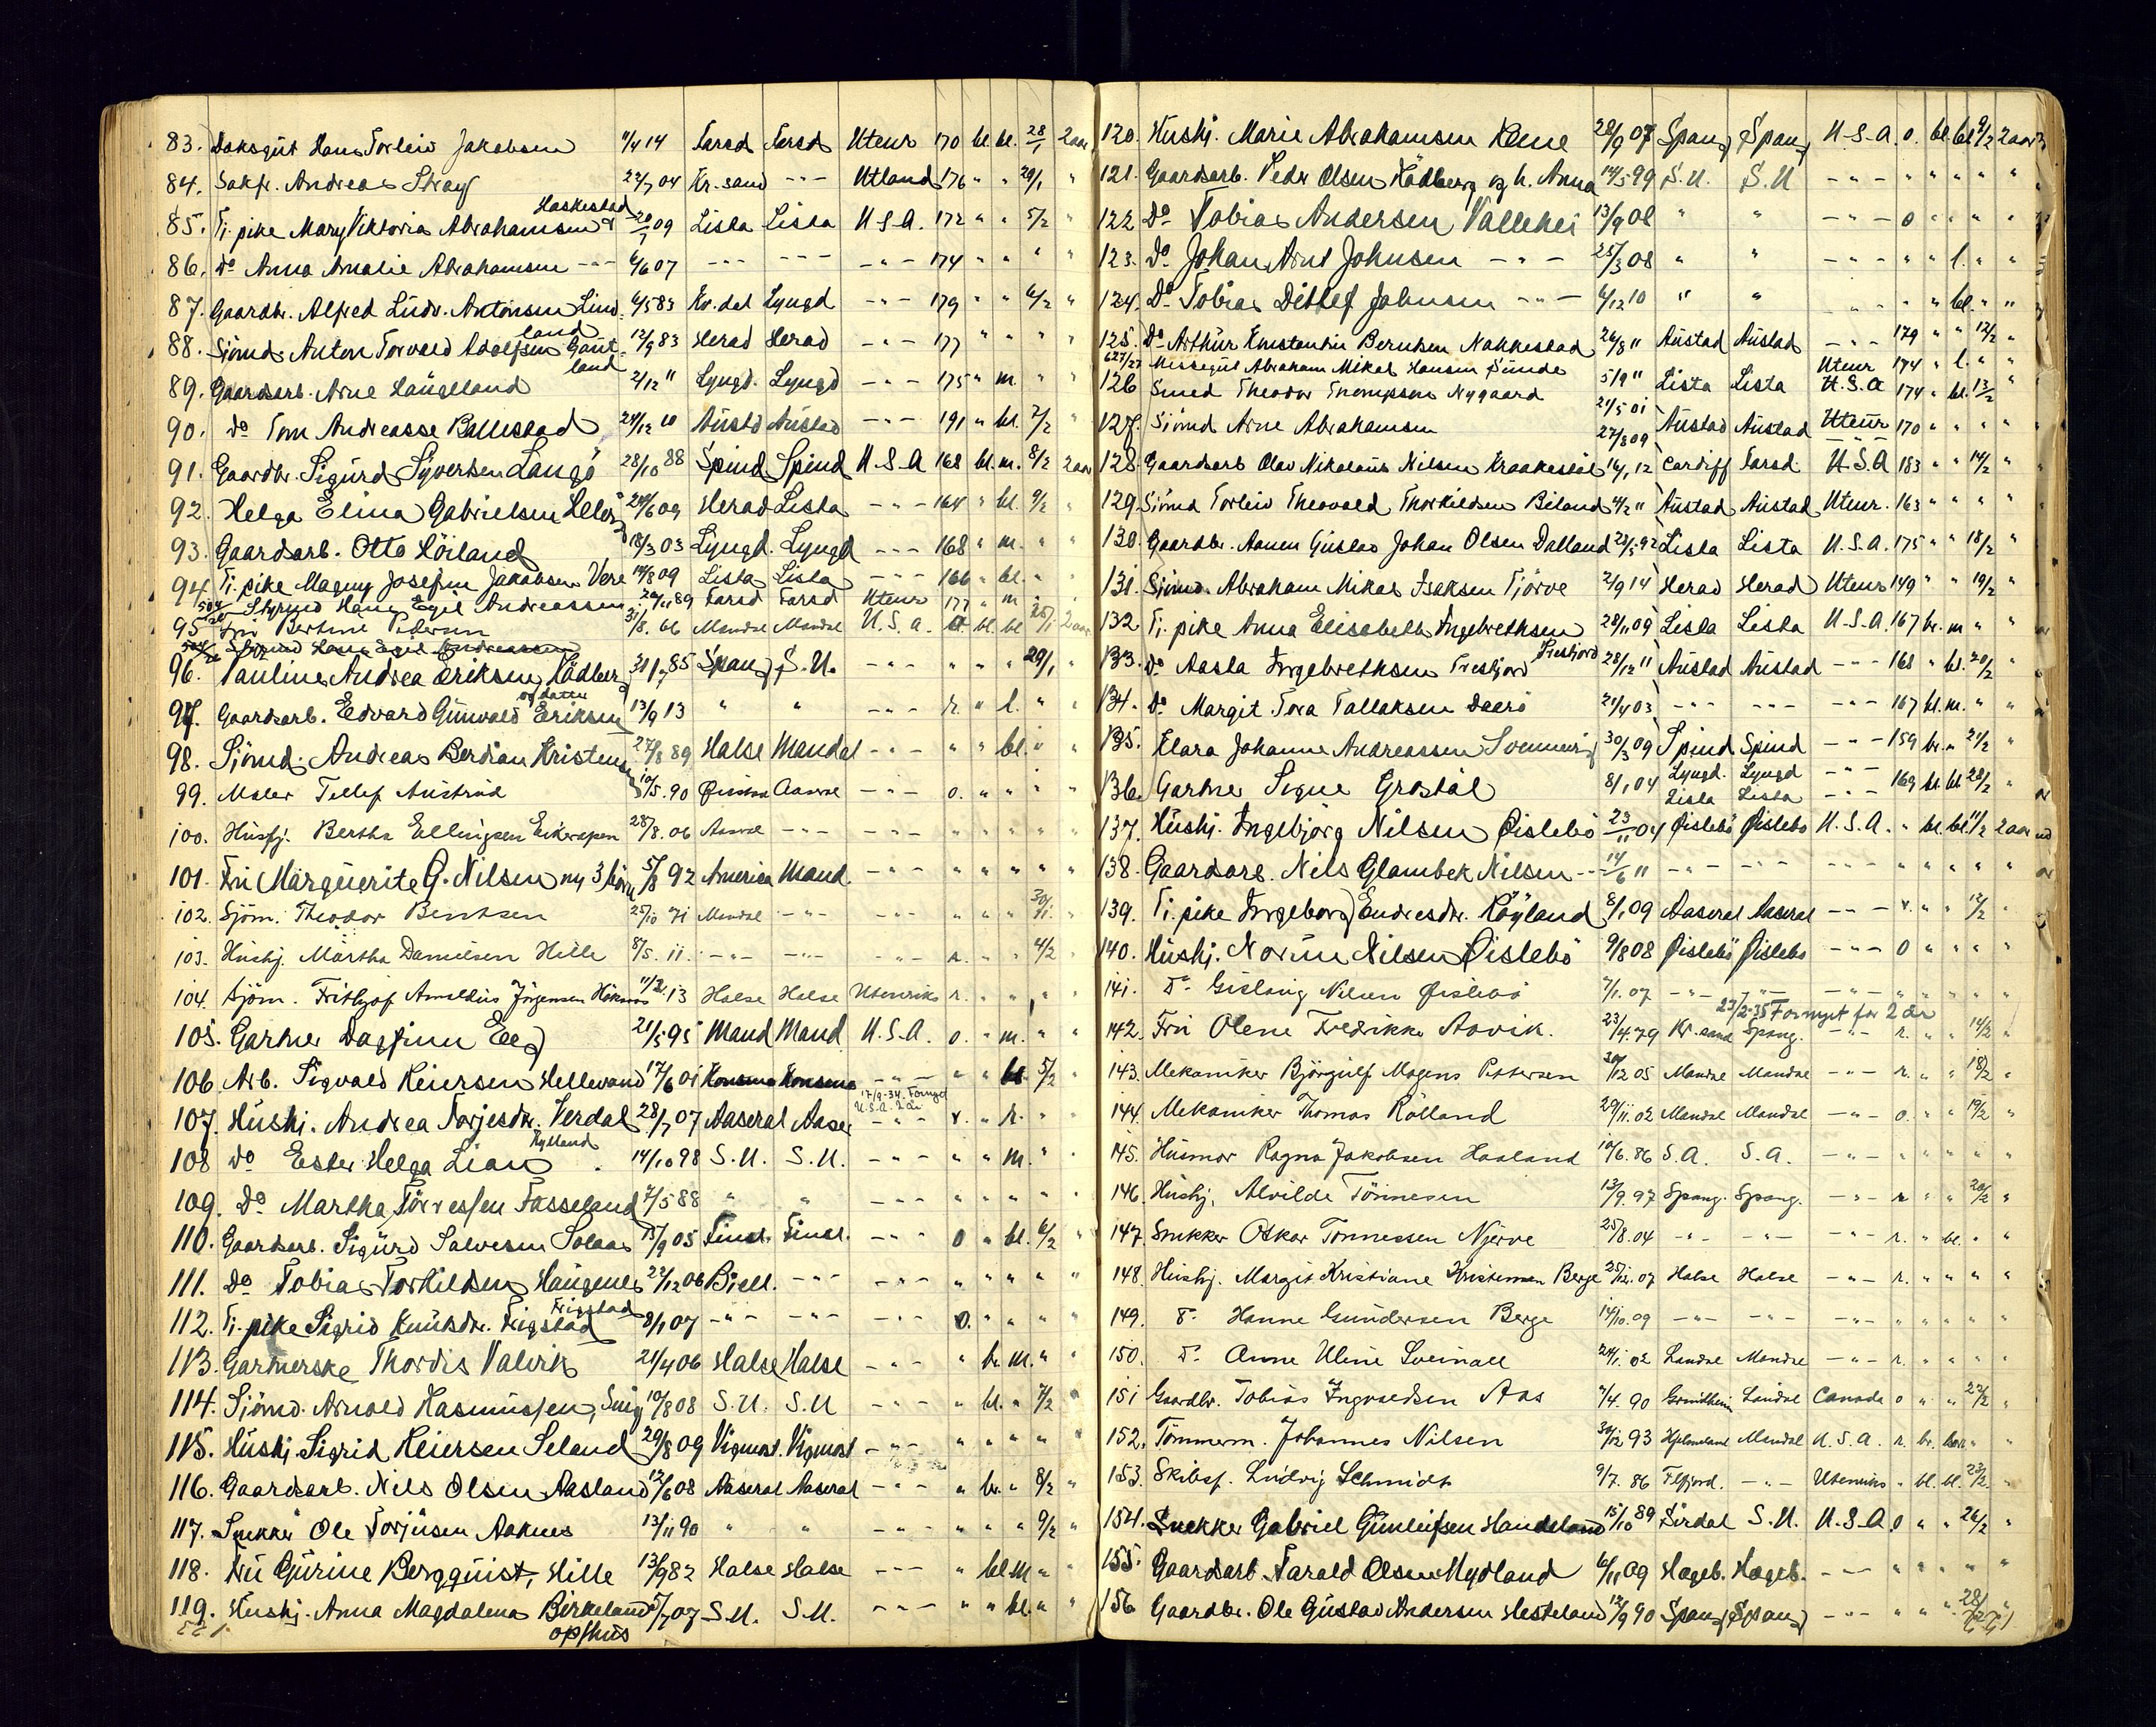 83. Daksgut Hans Torleiv Jakobsen 11/4 14 Farsd Farsd Utenr 170 bl. bl. 28/1 2 aar
84. Sakf. Andreas Stray 22/7 04 Kr. sand - " - Utland 176 " " 29/1 "
Haskestad
85. Ti. pike Mary Viktoria Abrahamsen 20/7 09 Lista Lista U.S.A. 172 " " 5/2 "
86. do Anna Amalie Abrahamsen - " - 6/6 07 - " - - " - - " - 174 " " " "
87. Gaardbr. Alfred Ludv. Antonsen Lind- 6/5 83 Kv.dal Lyngd - " - 179 " " 6/2 "
land
88. Sjömd. Anton Torvald Adolfsen Gaut- 12/9 83 Herad Herad - " - 177 " " " "
land
89. Gaardsarb. Arne Haugland 2/12 " Lyngd. Lyngd - " - 175 " m. " "
90. do Tom Andreasse Ballestad 24/12 10 Austd Austad - " - 191 " bl. 7/2 "
91. Gaardbr. Sigurd Syvertsen Langö 28/10 88 Spind Spind U.S.A 168 bl. m. 8/2 2 aar
92. Helga Elina Gabrielsen 24/6 09 Herad Lista - " - 164 " bl. 9/2 "
93. Gaardsarb. Otto Höiland 18/3 03 Lyngd. Lyngd - " - 168 " m. " "
94. Ti. pike Magny Josefin Jakobsen Vere 14/8 09 Lista Lista - " - 166 " bl. " "
Styrmd Hans Egil Andreassen 20/11 89 Farsd Farsd Utenr 177 " m "
95 Fru Bertine Petersen 3/8. 66 Mandal Mandal U.S.a. bl. bl 25/1 2 aar
Styrmd Hans Egil Andreassen
96. Pauline Andrea Eriksen Rödberg 31/1 85 Spang S.U. - " - " " " 29/1 "
og datter
97. Gaardsarb. Edvard Gunvald Eriksen 13/9 13 " " - " - r. " l. " "
98. Sjömd. Andreas Berdian Kristensen 27/8 89 Halse Mandal - " - " " bl. " "
99. Maler Tellef Austrud 10/5. 90 Aaseral - " - o. " " " "
100. Hushj. Bertha Ellingsen Eikerapen 28/8. 06 Aaseral - " - - " - " " " " "
101. Fru Marguerite G. Nilsen m/ 3 börn 5/8 92 America Mand. - " - " " " " "
102. Sjöm. Theodor Bentsen 25/10 71 Mandal - " - - " - " " " 30/1. "
103. Hushj. Märtha Danielsen Hille 8/5. 11. - " - - " - - " - r. " " 4/2 "
104. Sjöm. Frithjof Arneldius Jörgensen 11/2. 13 Halse Halse Utenriks r. " " " "
105. Gartner Dagfinn Eeg 21/5 95 Mand Mand U.S.A. o. " m. " "
106. Arb. Sigvald Keiersen Hellevand 17/6 01 Konsmo Konsmo - " - " " bl. 5/2 "
17/9-34. Fornyet
U.S.A. 2 år
107. Hushj. Andrea Torjesdr. Verdal 28/7 07 Aaseral Aaser - " - r. " r. " "
Rylland
108 do Ester Helga Lian 14/10 98 S.U. S.U. - " - " " m. " "
109. Do Martha Törresfen Fasseland 7/5 88 " " - " - " " " " "
110. Gaardsarb. Sigurd Salvesen Solaas 15/9 05 Finsl. Finsl. - " - o " bl. 6/2 "
111. Do Tobias Torkildsen Haugenes 22/12 06 Biell. - " - - " - " " " " "
Frigstad
112. Ti. pike Sigrid Knutsdr. Frigstad 8/1 07 - " - - " - - " - o. " " " "
113. Gartnerske Thordis Valvik 21/4 06 Halse Halse - " - " br. m. " "
114. Sjömd. Arnold Rasmusfen, 10/8 08 S.U. S.U - " - " bl. " 7/2 "
115. Hushj. Sigrid Keiersen Seland 29/8 09 Vigmost. Vigmost - " - " " " " "
116. Gaardsarb. Nils Olsen Aasland 12/6 08 Aaseral Aaseral - " - " br. " 8/2 "
117. Snekker Ole Torjusen Aaknes 13/11 90 " " - " - " " " 9/2 "
118. Fru Gurine Bergquist, Hille 13/9 82 Halse Halse - " - " bl. m " "
119. Hushj. Anna Magdalena Birkeland 5/7 07 S.U. S.U. - " - " " bl. " "
opfhus
120. Hushj. Marie Abrahamsen Rene 28/9 07 Spang Spang U.S.A. o. bl. bl. 9/2 2 aar
121. Gaardsarb. Peder Olsen Rödberg og h. Anna 14/5 99 S.U. S.U - " - " " " " "
122 Do Tobias Andersen Vallehei 13/9 08 " " - " - o " " " "
123. Do Johan Arnt Johnsen - " - 25/3 08 " " - " - " " l. " "
124. Do Tobias Ditlef Johnsen - " - 6/12 10 " " " " " bl. " "
125. Do Arthur Konstantin Berntsen Nakkestad 26/8 " Austad Austad - " - 179 " " 12/2 "
627/27 Messegut Abraham Mikal Hansen Sunde 5/9 " Utenr 174 " l. " "
126 Smed Theodor Thompsen Nygaard 21/5 01 Lista Lista U.S.a 174 " bl. 13/2 "
127. Sjömd Arne Abrahamsen 27/8 09 Austad Austad Utenr 170 " " " "
128. Gaardsarb Olav Nikolaus Nilsen Kraakestöl 14/1 12 Cardiff Farsd U.S.A 183 " " 14/2 "
129. Sjömd Torleiv Theovald Thorkildsen Biland 4/2 " Austad Austad Utenr. 163 " " " "
130. Gaardbr. Aanen Gustav Johan Olsen Dalland 23/5 92 Lista Lista U.S.A. 175 " " 18/2 "
131. Sjömd. Abraham Mikal Isaksen Tjörve 2/9 14 Herad Herad Utenr 149 " " 19/2 "
132 Ti. pike Anna Elisabeth Ingebrethsen 28/11 09 Lista Lista U.S.A. 167 br. m " "
Tresfjord
133. do Aasta Ingebrethsen Tresfjord 28/12 " Austad Austad - " - 168 " bl. 20/2 "
134. Do Margit Tora Tallaksen Daerö 21/4 03 - " - - " - - " - 167 bl. m. " "
135. Klara Johanne Andreassen Svennevig 30/3 09 Spind Spind - " - 159 br. " 21/2 "
Lyngd. Lyngd - " -
136. Gartner Signe Grostöl 8/1 04 Lista Lista - " - 169 bl. bl. 28/2 "
137. Hushj. Ingebjörg Nilsen Øislebö 23/11 04 Øislebö Øislebo U.S.A. " bl. bl. 11/2 2 aar
138. Gaardsarb. Nils Glambek Nilsen - " - 14/6 " - " - - " - - " - " " " " "
139. Ti. pike Ingeborg Endresdr. Röyland 8/1 09 Aaseral Aaseral - " - r. " " 12/2 "
140. Hushj. Norine Nilsen Øislebö 9/8 08 Øislebö Øislebo - " - o " " " "
141. Do Gislaug Nilsen Øislebö 7/1. 07 - " - - " - - " - " " " " "
23/2-35 Fornyet for 2 år
142. Fru Olene Fredrikke Aavik. 23/4. 79 Kr. sand Spang. - " - r. " " 14/2 "
143. Mekaniker Björgulf Mogens Pettersen 30/12 05 Mandal Mandal - " - r. " " 18/2 "
144. Mekaniker Thomas Rölland 29/11. 02 Mandal Mandal - " - o. " " 19/2 "
145. Husmor Ragna Jakobsen Haaland 10/6. 86 S.A. S.A. - " - " " " " "
146. Hushj. Alvilde Tönnesen 13/9. 97 Spang. Spang. - " - r. " " 20/2 "
147. Snekker Oskar Tönnessen Njerve 25/8. 04 - " - - " - - " - r. " bl. " "
148. Hushj. Margit Kristiane Kristensen Berge 25/12. 07 Halse Halse - " - r. " " " "
149. Do Hanne Gundersen Berge 14/10. 09 - " - - " - - " - " " " " "
150. Do Anne Uline Sveinall 24/1. 02 Landal Mandal - " - r. " " " "
151 Gaardbr. Tobias Ingvaldsen Aas 7/4. 90 Grindheim Landal Canada o " " 22/2 "
152. Tömmerm. Johannes Nilsen 30/12 93 Hjelmeland Mandal U.S.A. r. br. " "
153. Skibsf. Ludvig Schmidt 9/7. 86 - " - Utenriks " bl. bl. 23/2 "
154. Snekker Gabriel Gunleifsen Handeland 15/10 89 Sirdal S.U. U.S.A o " " 26/2 "
155. Gaardsarb. Tarald Olsen Mydland 6/11 09 Hægeb. Hægeb. - " - " " " " "
156 Gaardbr. Ole Gustav Andersen Hesteland 12/9 90 Spang Spang - " - " " " 28/2 "